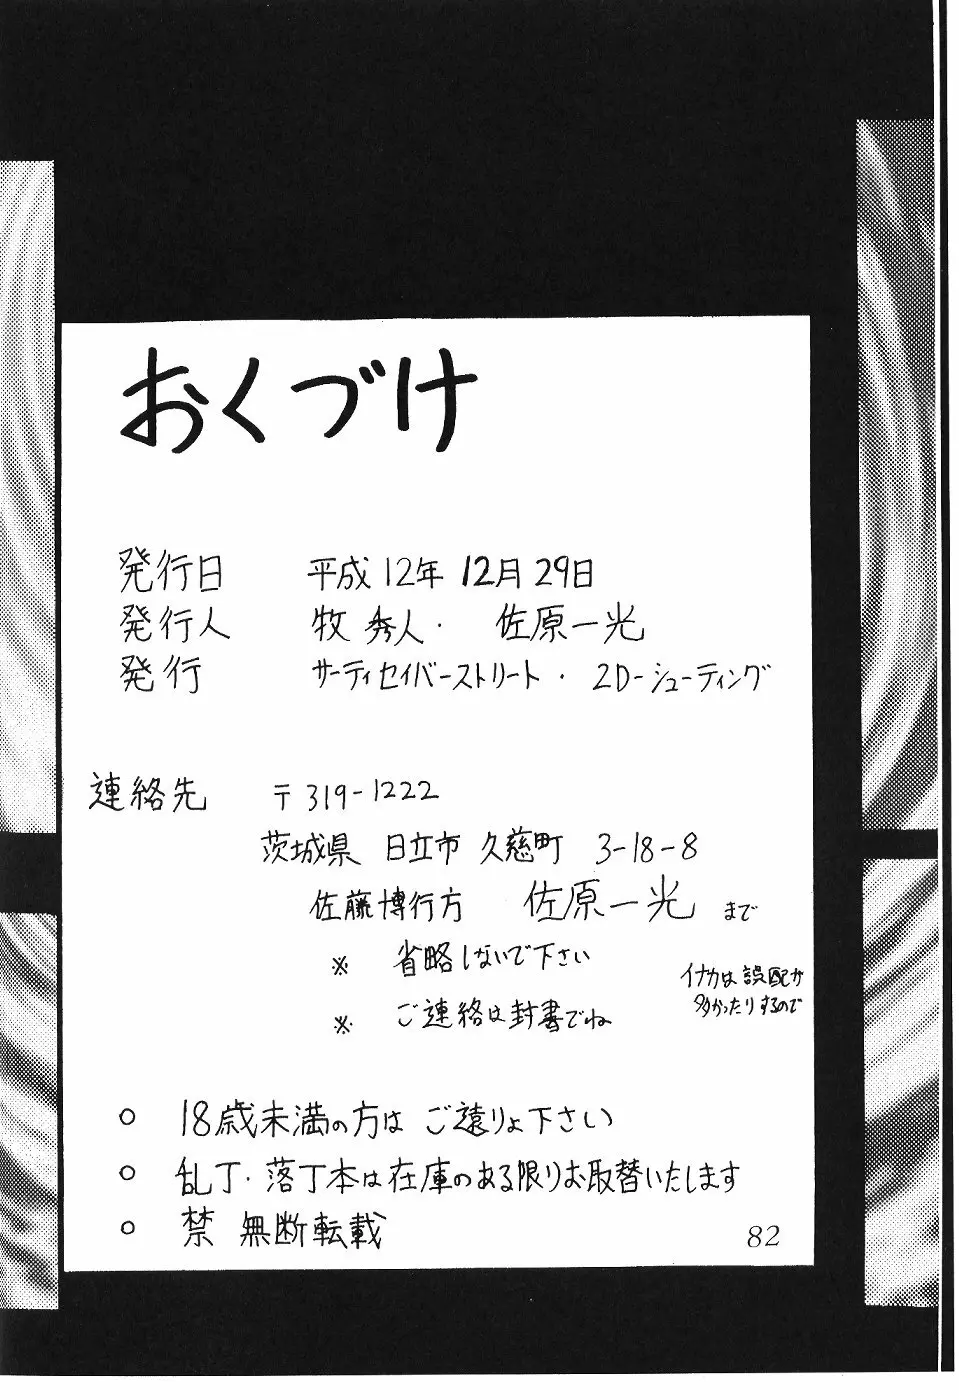 おくづけ
発行日 平成12年 12月 29日
発行人 牧 秀人・ 佐原一光
発行 サーティセイバーストリート・2D-シューティング
連絡先 〒319-1222
茨城県 日立市 久慈町 3-18-8
佐藤博行方 佐原一光 まで
※ 省略しないで下さい
イナカは誤配が
多かったりするので
※ ご連絡は封書でね
○ 18歳未満の方は ご遠りょ下さい
○ 乱丁・落丁本は在庫のある限りお取替いたします
○ 禁 無断転載
82